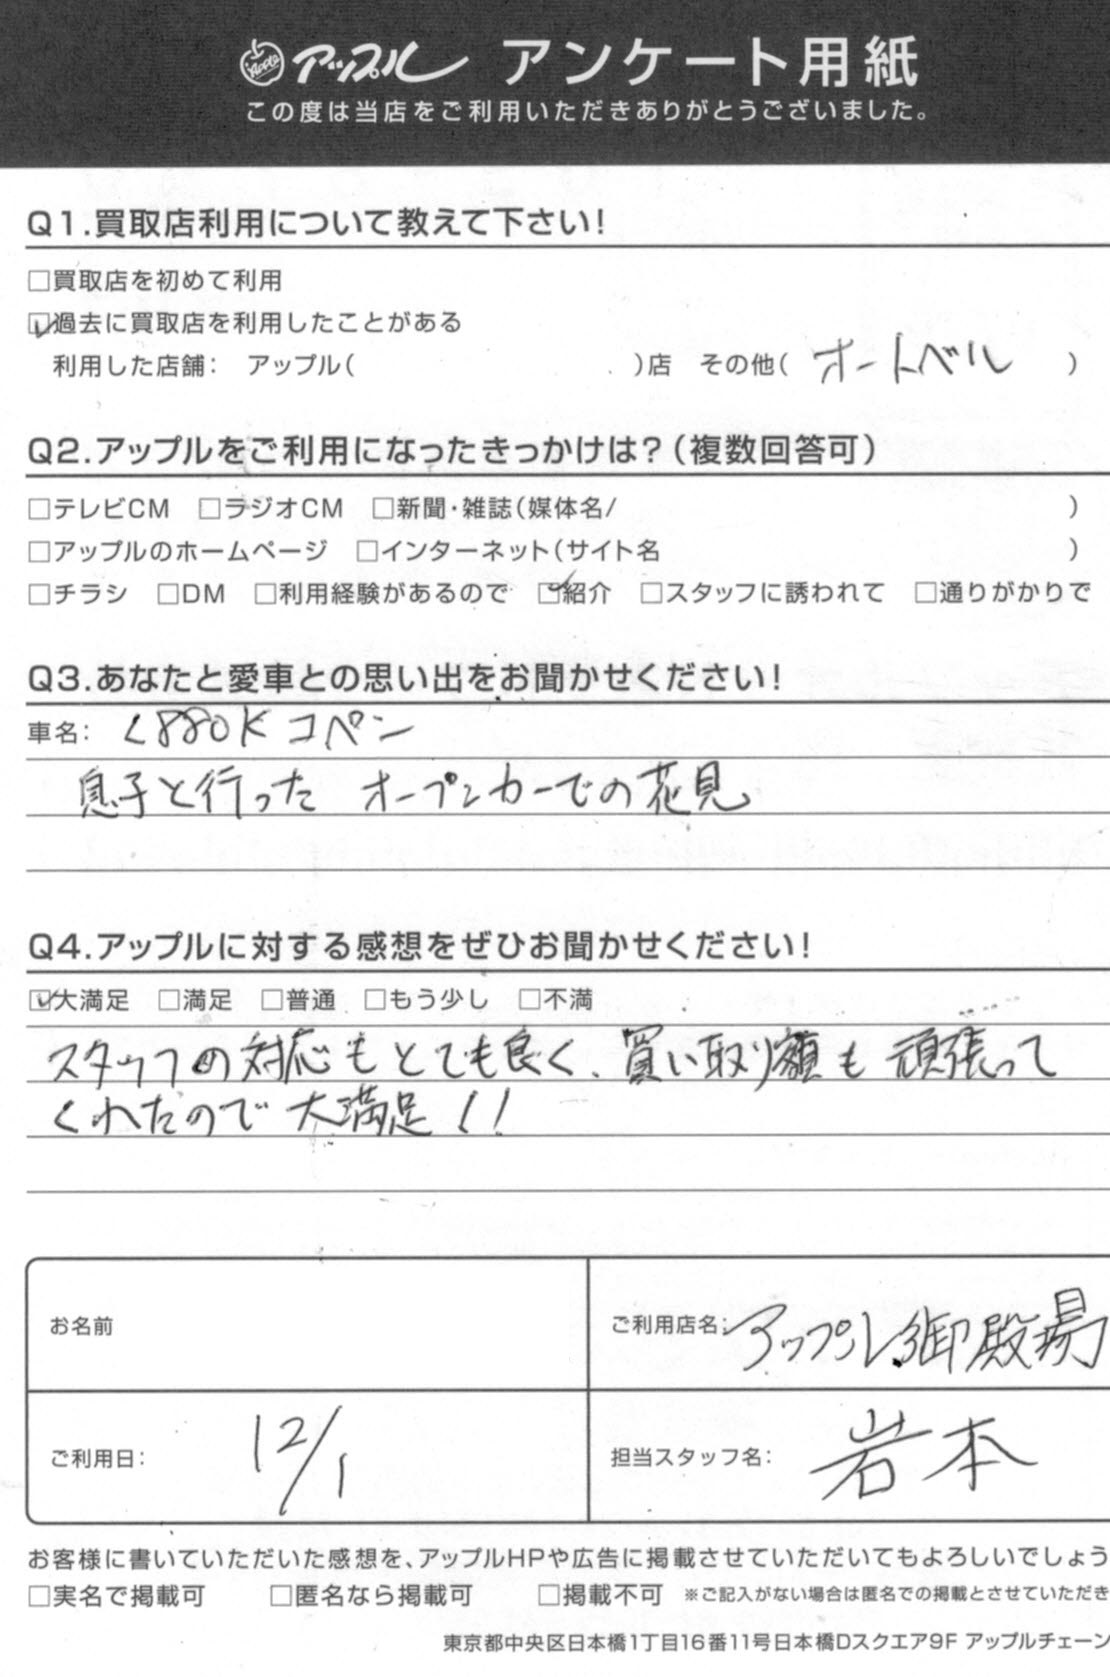 Apple アップル アンケート用紙
この度は当店をご利用いただきありがとうございました。
Q1.買取店利用について教えて下さい!
□買取店を初めて利用
☑過去に買取店を利用したことがある
利用した店舗: アップル( )店 その他( オートベル )
Q2.アップルをご利用になったきっかけは?(複数回答可)
□テレビCM □ラジオCM □新聞・雑誌(媒体名/ )
□アップルのホームページ □インターネット(サイト名 )
□チラシ □DM □利用経験があるので ☑紹介 □スタッフに誘われて □通りがかりで
Q3.あなたと愛車との思い出をお聞かせください!
車名: L880K コペン
息子と行った オープンカーでの花見
Q4.アップルに対する感想をぜひお聞かせください!
☑大満足 □満足 □普通 □もう少し □不満
スタッフの対応もとても良く、買い取り額も頑張って
くれたので大満足!!
お名前
ご利用店名: アップル御殿場
ご利用日: 12/1
担当スタッフ名: 岩本
お客様に書いていただいた感想を、アップルHPや広告に掲載させていただいてもよろしいでしょう
□実名で掲載可 □匿名なら掲載可 □掲載不可 ※ご記入がない場合は匿名での掲載とさせていただき
東京都中央区日本橋1丁目16番11号日本橋Dスクエア9F アップルチェーン